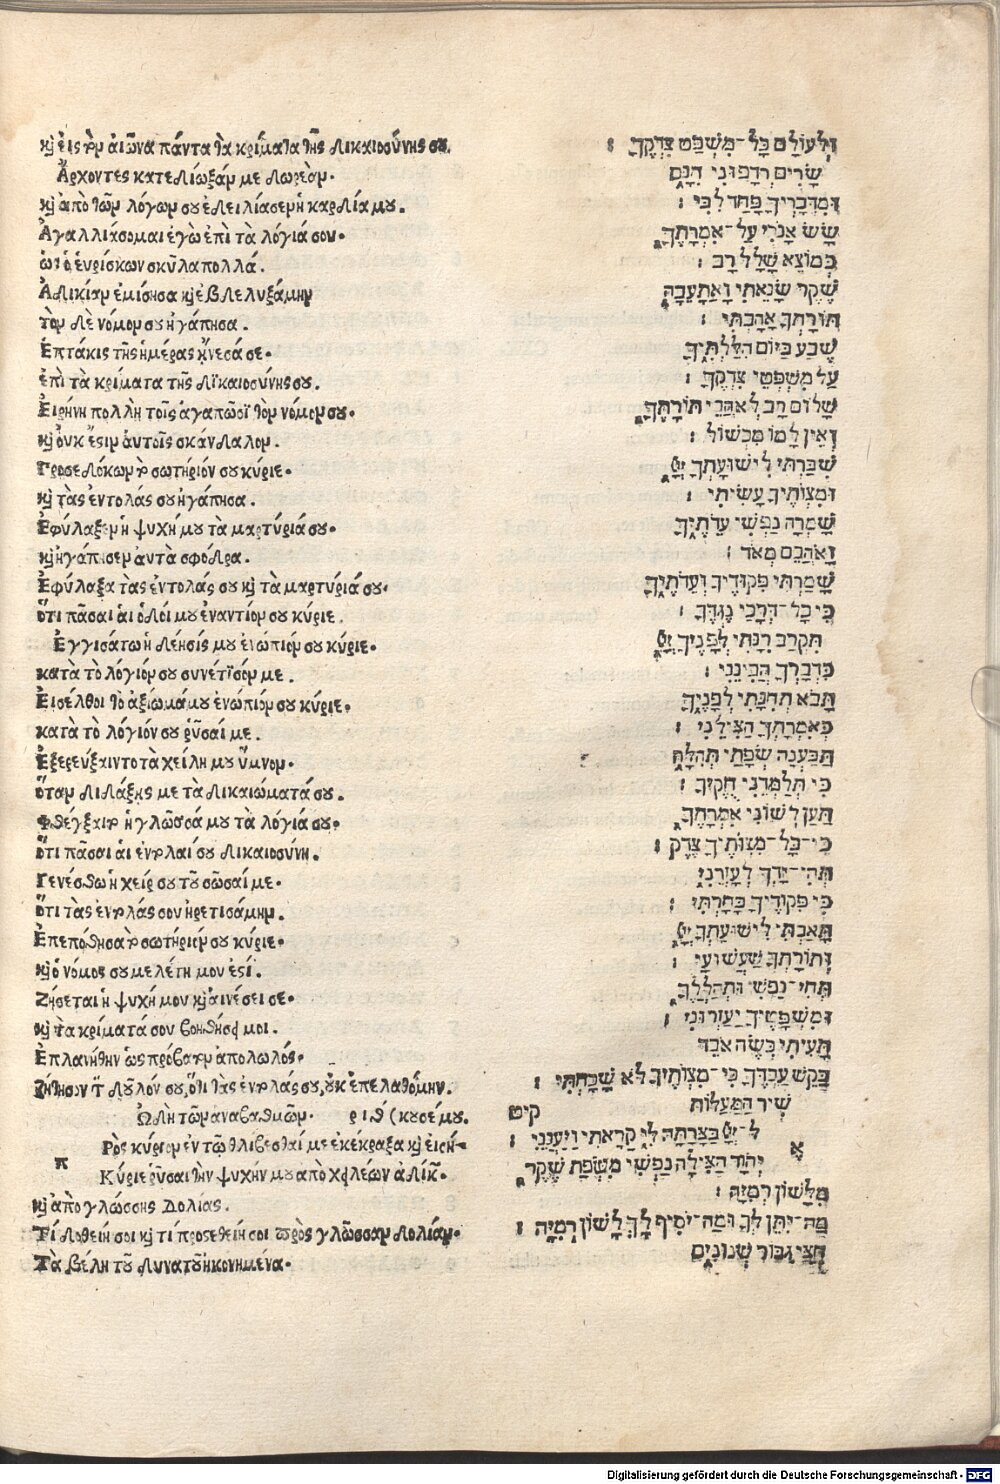 κ̀ εἰς τὸν ἀιῶνα πάντα τὰ κρίματα τῆς δικαιοσύνης σου.
Ἄρχοντες κατεδίωξάν με δωρεάν.
κ̀ ἀπὸ τῶν λόγων σου ἐδειλίασεν ἡ καρδία μου.
Ἀγαλλιάσομαι ἐγὼ ἐπὶ τὰ λόγιά σου.
ὡς ὁ ἑυρίσκων σκῦλα πολλά.
Ἀδικίαν ἐμίσησα κ̀ ἐβδελυξάμην
τὸν δὲ νόμον σου ἠγάπησα.
Ἑπτάκις τῆς ἡμέρας ᾔνεσά σε.
ἐπὶ τὰ κρίματα τῆς δικαιοσύνης σου.
Ειρήνη πολλὴ τοῖς ἀγαπῶσι τὸν νόμον σου.
κ̀ ὀυκ ἔστιν ἀυτοῖς σκάνδαλον.
Προσεδόκων τὸ σωτήριόν σου κύριε.
κ̀ τὰς ἐντολάς σου ἠγάπησα.
Ἐφύλαξεν ἡ ψυχή μου τὰ μαρτύριά σου.
κ̀ ἠγάπησεν ἀυτὰ σφόδρα.
Ἐφύλαξα τὰς ἐντολάς σου κ̀ τὰ μαρτύριά σου.
ὅτι πᾶσαι ἁι ὁδοί μου ἐναντίον σου κύριε.
Ἐγγισάτω ἡ δέησίς μου ἐνώπιόν σου κύριε.
κατὰ τὸ λόγιόν σου συνέτισόν με.
Εισέλθοι τὸ ἀξίωμά μου ἐνώπιόν σου κύριε.
κατὰ τὸ λόγιόν σου ῥῦσαί με.
Ἐξερεύξαιντο τὰ χείλη μου ὕμνον.
ὅταν διδάξῃς με τὰ δικαιώματά σου.
Φθέγξαιτο ἡ γλῶσσά μου τὰ λόγιά σου.
ὅτι πᾶσαι ἁι ἐντολαί σου δικαιοσύνη.
Γενέσθω ἡ χείρ σου τοῦ σῶσαί με.
ὅτι τὰς ἐντολάς σου ἡρετισάμην.
Ἐπεπόθησα τὸ σωτήριόν σου κύριε.
κ̀ ὁ νόμος σου μελέτη μου ἐστί.
Ζήσεται ἡ ψυχή μου κ̀ ἀινέσει σε.
κ̀ τὰ κρίματά σου βοηθήσει μοι.
Ἐπλανήθην ὡς πρόβατον ἀπολωλός.
Ζήτησον τὸν δοῦλόν σου, ὅτι τὰς ἐντολάς σου, ὀυκ ἐπελαθόμην.
Ὠδὴ τῶν ἀναβαθμῶν. ριθ
Ρὸς κύριον ἐν τῷ θλίβεσθαί με ἐκέκραξα κ̀ εἰσή-
π
Κύριε ῥῦσαι τὴν ψυχήν μου ἀπὸ χειλέων ἀδίκ.
κ̀ ἀπὸ γλώσσης δολίας.
Τί δοθείη σοι κ̀ τί προστεθείη σοι πρὸς γλῶσσαν δολίαν.
Τὰ βέλη τοῦ δυνατοῦ ἠκονημένα.
וּלְעוֹלָם כָּל־מִשְׁפַּט צִדְקֶךָ׃
שָׂרִים רְדָפוּנִי חִנָּם
וּמִדְּבָרְיךָ פָּחַד לִבִּי׃
שָׂשׂ אָנֹכִי עַל־אִמְרָתֶךָ
כְּמוֹצֵא שָׁלָל רָב׃
שֶׁקֶר שָׂנֵאתִי וָאֲתַעֵבָה
תּוֹרָתְךָ אָהָבְתִּי׃
שֶׁבַע בַּיּוֹם הִלַּלְתִּיךָ
עַל מִשְׁפְּטֵי צִדְקֶךָ׃
שָׁלוֹם רָב לְאֹהֲבֵי תוֹרָתֶךָ
וְאֵין לָמוֹ מִכְשׁוֹל׃
שִׂבַּרְתִּי לִישׁוּעָתְךָ
וּמִצְוֹתֶיךָ עָשִׂיתִי׃
שָׁמְרָה נַפְשִׁי עֵדֹתֶיךָ
וָאֹהֲבֵם מְאֹד׃
שָׁמַרְתִּי פִקּוּדֶיךָ וְעֵדֹתֶיךָ
כִּי כָל־דְּרָכַי נֶגְדֶּךָ׃
תִּקְרַב רִנָּתִי לְפָנֶיךָ
כִּדְבָרְךָ הֲבִינֵנִי׃
תָּבֹא תְחִנָּתִי לְפָנֶיךָ
כְּאִמְרָתְךָ הַצִּילֵנִי׃
תַּבַּעְנָה שְׂפָתַי תְּהִלָּה
כִּי תְלַמְּדֵנִי חֻקֶּיךָ׃
תַּעַן לְשׁוֹנִי אִמְרָתֶךָ
כִּי־כָל־מִצְוֹתֶיךָ צֶּדֶק׃
תְּהִי־יָדְךָ לְעָזְרֵנִי
כִּי פִקּוּדֶיךָ בָחָרְתִּי׃
תָּאַבְתִּי לִישׁוּעָתְךָ
וְתוֹרָתְךָ שַׁעֲשׁוּעָי׃
תְּחִי־נַפְשִׁי וּתְהַלְלֶךָּ
וּמִשְׁפָּטֶיךָ יַעְזְרוּנִי׃
תָּעִיתִי כְּשֶׂה אֹבֵד
בַּקֵּשׁ עַבְדֶּךָ כִּי־מִצְוֹתֶיךָ לֹא שָׁכָחְתִּי׃
שִׁיר הַמַּעֲלוֹת קיט
בַּצָּרָתָה לִּי קָרָאתִי וַיַּעֲנֵנִי׃
א
הַצִּילָה נַפְשִׁי מִשְּׂפַת שֶׁקֶר
מִלָּשׁוֹן רְמִיָּה׃
מַה־יִּתֵּן לְךָ וּמַה־יֹּסִיף לָךְ לָשׁוֹן רְמִיָּה׃
חִצֵּי גִבּוֹר שְׁנוּנִים
Digitalisierung gefördert durch die Deutsche Forschungsgemeinschaft - DFG